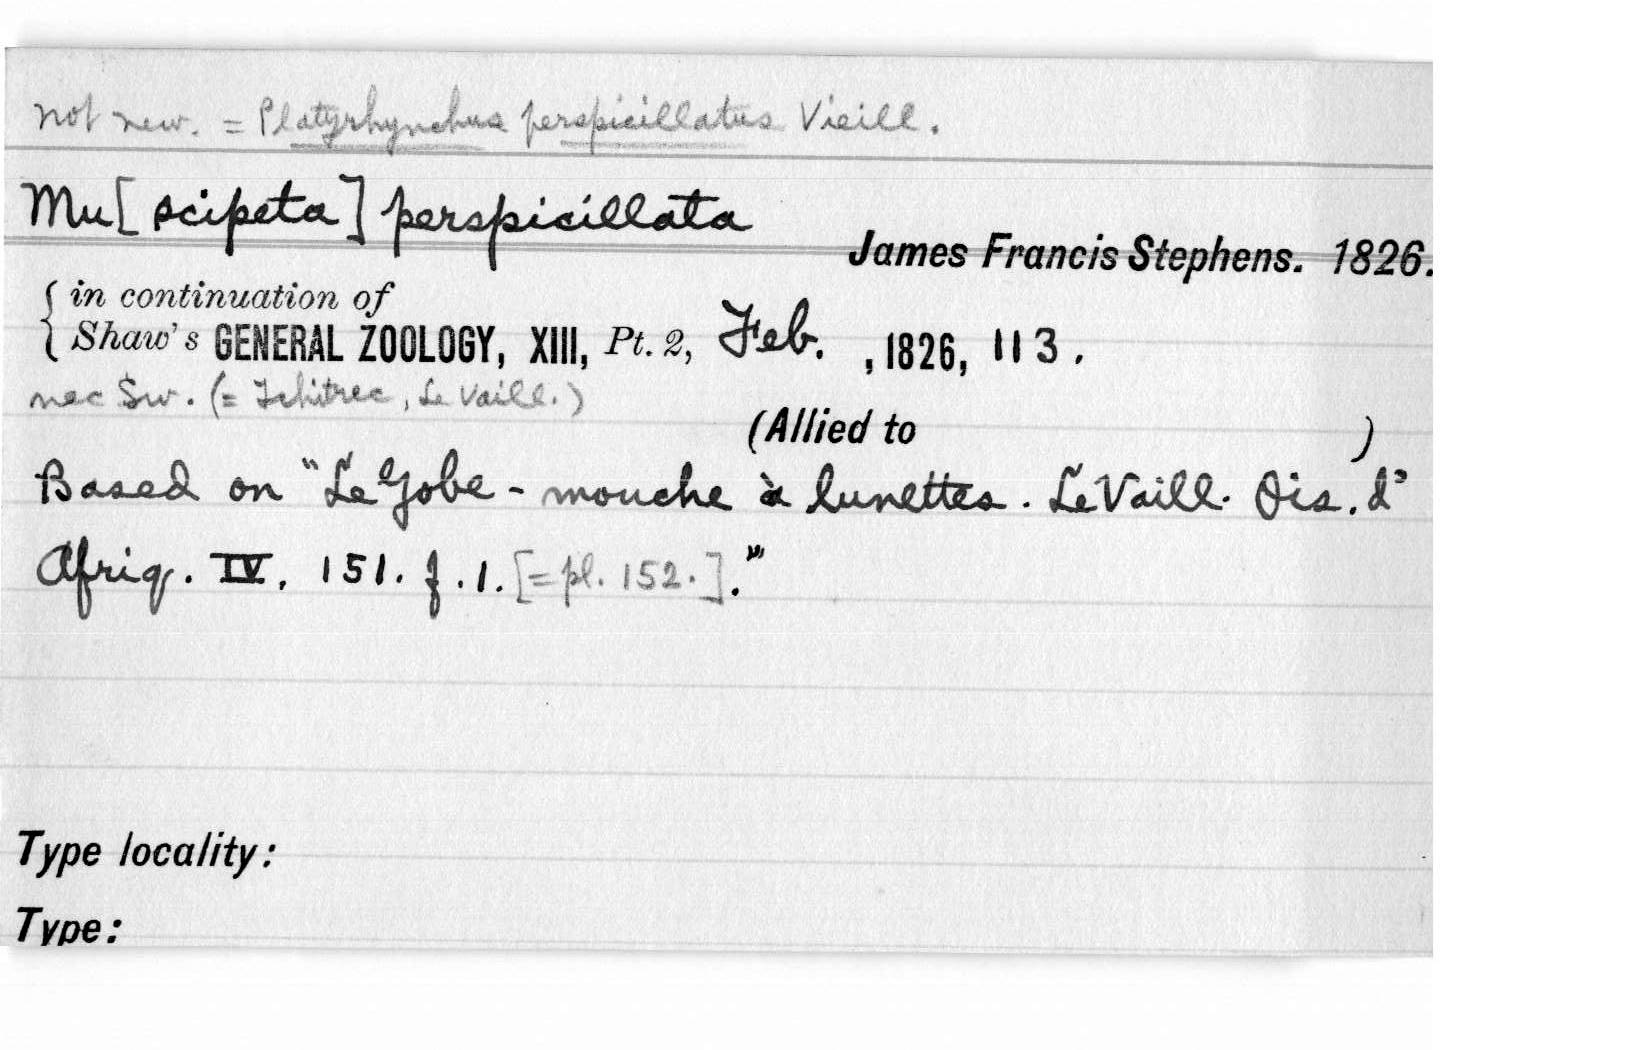 not new. = Platyrhynchus perspicillatus Vieill.
Mu[scipeta] perspicillata
James Francis Stephens. 1826.
{ in continuation of
Shaw's GENERAL ZOOLOGY, XIII, Pt. 2, Feb. , 1826, 113.
nec Sw. (= Tchitrec, Le Vaill.)
(Allied to )
Based on "Le Gobe-mouche à lunettes. Le Vaill. Ois. d'
Afriq. IV. 151. f. 1. [=pl. 152.]."
Type locality:
Type: